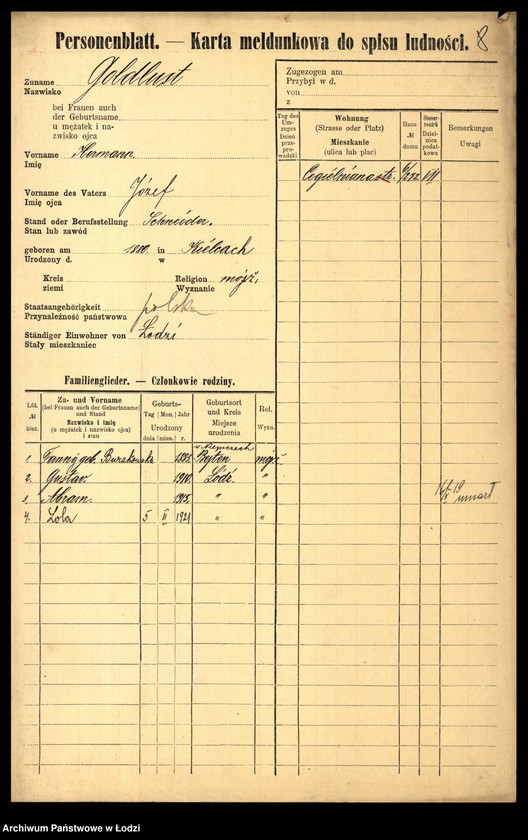 Personenblatt. — Karta meldunkowa do spisu ludności. 8
Zuname Goldlust
Nazwisko
bei Frauen auch
der Geburtsname
u mężatek i na-
zwisko ojca
Vorname Hermann.
Imię
Vorname des Vaters Józef
Imię ojca
Stand oder Berufsstellung Schneider.
Stan lub zawód
geboren am 1880 in Kielcach
Urodzony d. w
Kreis Religion mojż.
ziemi Wyznanie
Staatsangehörigkeit polska
Przynależność państwowa
Ständiger Einwohner von Łodzi
Stały mieszkaniec
Zugezogen am
Przybył w d.
von
z
Tag des Um-zuges Dzień prze-pro-wadzki
Wohnung (Strasse oder Platz) Mieszkanie (ulica lub plac)
Haus- № domu
Steuer-bezirk Dzielnica podat-kowa
Bemerkungen Uwagi
Cegielniana VIII
Familienglieder. — Członkowie rodziny.
Lfd. № bież.
Zu- und Vorname (bei Frauen auch der Geburtsname) und Stand Nazwisko i imię (u mężatek i nazwisko ojca) i stan
Geburts- Tag Mon. Jahr Urodzony dnia mies. r.
Geburtsort und Kreis Miejsce urodzenia
Rel. Wyzn.
1. Fanny geb. Burakowska 1883 w Niemczech mojż.
2. Gustav. 1910. Łódź. "
3. Abram. 1915. " " 19 umarł
4. Lola 5 II 1921 " "
Archiwum Państwowe w Łodzi